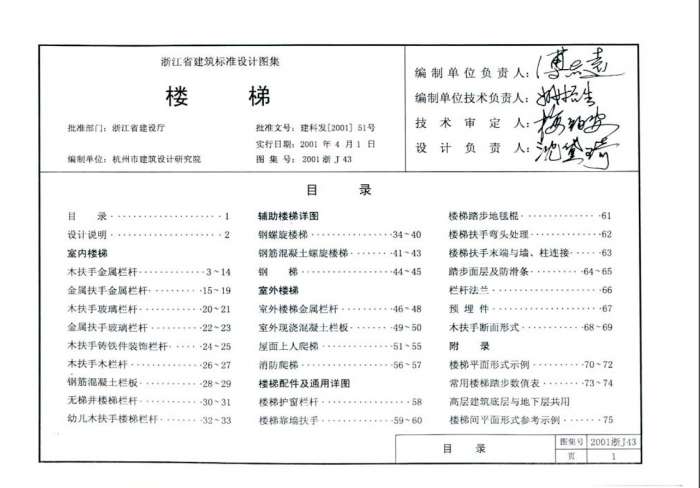 浙江省建筑标准设计图集
楼 梯
批准部门：浙江省建设厅
批准文号：建科发[2001]51号
实行日期：2001 年 4 月 1 日
编制单位：杭州市建筑设计研究院
图 集 号：2001浙J43
编制单位负责人：
编制单位技术负责人：
技 术 审 定 人：
设 计 负 责 人：
目 录
目 录 1
设计说明 2
室内楼梯
木扶手金属栏杆 3~14
金属扶手金属栏杆 15~19
木扶手玻璃栏杆 20~21
金属扶手玻璃栏杆 22~23
木扶手铸铁件装饰栏杆 24~25
木扶手木栏杆 26~27
钢筋混凝土栏板 28~29
无梯井楼梯栏杆 30~31
幼儿木扶手楼梯栏杆 32~33
辅助楼梯详图
钢螺旋楼梯 34~40
钢筋混凝土螺旋楼梯 41~43
钢 梯 44~45
室外楼梯
室外楼梯金属栏杆 46~48
室外现浇混凝土栏板 49~50
屋面上人爬梯 51~55
消防爬梯 56~57
楼梯配件及通用详图
楼梯护窗栏杆 58
楼梯靠墙扶手 59~60
楼梯踏步地毯棍 61
楼梯扶手弯头处理 62
楼梯扶手末端与墙、柱连接 63
踏步面层及防滑条 64~65
栏杆法兰 66
预 埋 件 67
木扶手断面形式 68~69
附 录
楼梯平面形式示例 70~72
常用楼梯踏步数值表 73~74
高层建筑底层与地下层共用
楼梯间平面形式参考示例 75
目 录
图集号 2001浙J43
页 1